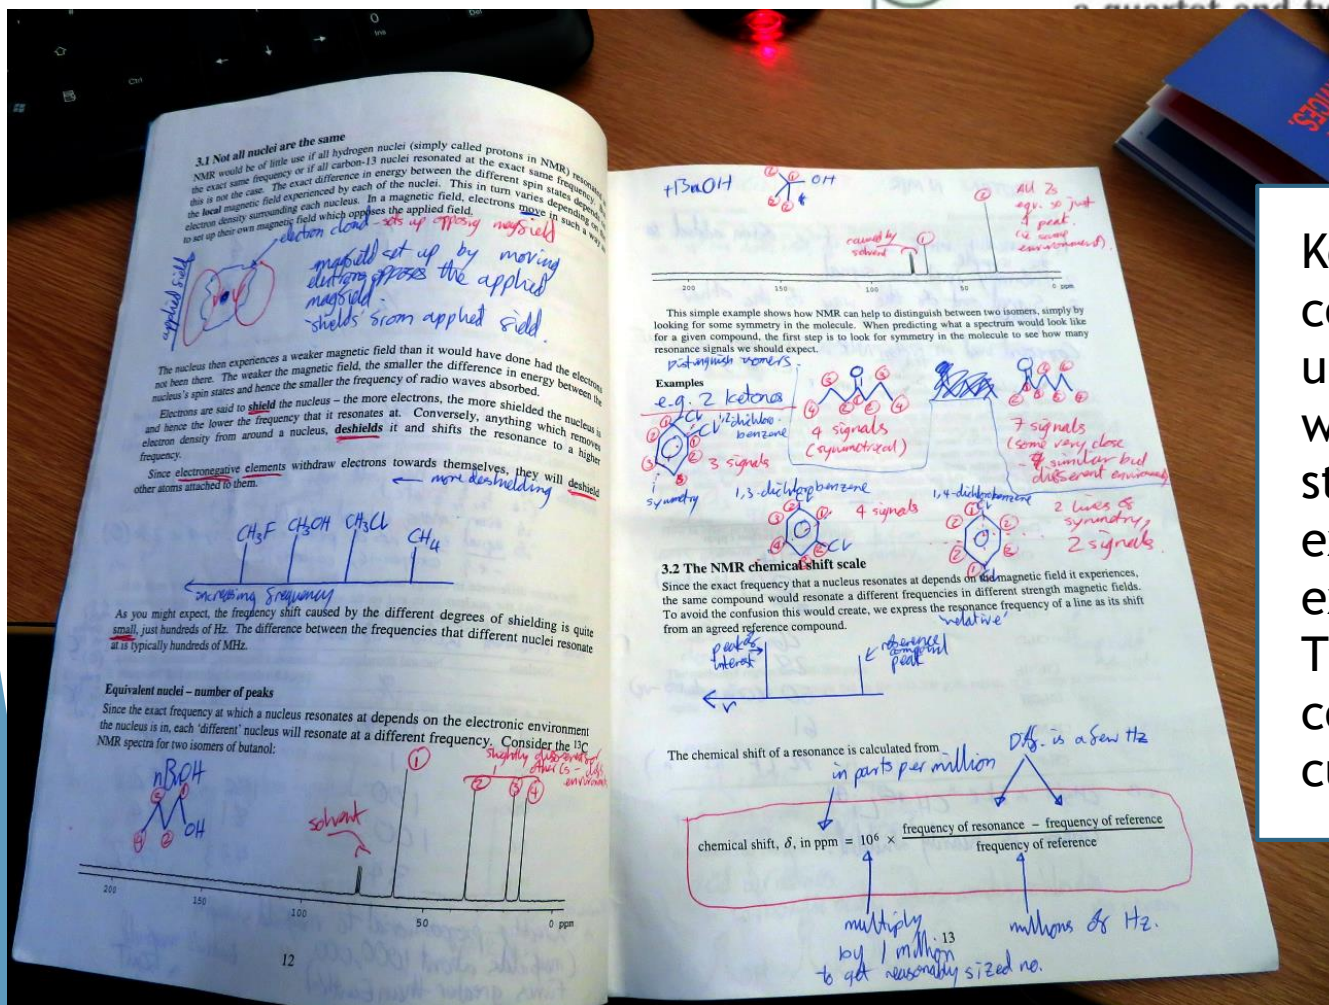 a quartet and
3.1 Not all nuclei are the same
NMR would be of little use if all hydrogen nuclei (simply called protons in NMR)
the exact same frequency or if all carbon-13 nuclei resonated at the exact same frequency.
this is not the case. The exact difference in energy between the different spin states depends
the local magnetic field experienced by each of the nuclei. This in turn varies depending on
electron density surrounding each nucleus. In a magnetic field, electrons move in such a way as
to set up their own magnetic field which opposes the applied field.
electron cloud - sets up opposing magfield
applied field
magfield set up by moving
electrons opposes the applied
magfield.
'shields' from applied field.
The nucleus then experiences a weaker magnetic field than it would have done had the electrons
not been there. The weaker the magnetic field, the smaller the difference in energy between the
nucleus's spin states and hence the smaller the frequency of radio waves absorbed.
Electrons are said to shield the nucleus – the more electrons, the more shielded the nucleus is
and hence the lower the frequency that it resonates at. Conversely, anything which removes
electron density from around a nucleus, deshields it and shifts the resonance to a higher
frequency.
Since electronegative elements withdraw electrons towards themselves, they will deshield
other atoms attached to them.
← more deshielding
CH3F CH3OH CH3Cl CH4
increasing frequency
As you might expect, the frequency shift caused by the different degrees of shielding is quite
small, just hundreds of Hz. The difference between the frequencies that different nuclei resonate
at is typically hundreds of MHz.
Equivalent nuclei – number of peaks
Since the exact frequency at which a nucleus resonates at depends on the electronic environment
the nucleus is in, each 'different' nucleus will resonate at a different frequency. Consider the 13C
NMR spectra for two isomers of butanol:
nBuOH
OH
solvent
1 2 3 4
200 150 100 50 0 ppm
12
tBuOH
OH
caused by
solvent
All 2s
eqv. so just
1 peak.
(ie same
environment).
200 150 100 50 0 ppm
This simple example shows how NMR can help to distinguish between two isomers, simply by
looking for some symmetry in the molecule. When predicting what a spectrum would look like
for a given compound, the first step is to look for symmetry in the molecule to see how many
resonance signals we should expect.
Distinguish isomers.
Examples
e.g. 2 ketones
1,2-dichloro-
benzene
3 signals
symmetry
4 signals
(symmetrical)
7 signals
(some very close
- similar but
different environments)
1,3-dichlorobenzene
4 signals
Cl
1,4-dichlorobenzene
2 lines of
symmetry,
2 signals.
3.2 The NMR chemical shift scale
Since the exact frequency that a nucleus resonates at depends on the magnetic field it experiences,
the same compound would resonate a different frequencies in different strength magnetic fields.
To avoid the confusion this would create, we express the resonance frequency of a line as its shift
from an agreed reference compound.
'relative'
peak of
interest
reference
compound
peak
The chemical shift of a resonance is calculated from
in parts per million
Diff. is a few Hz
chemical shift, δ, in ppm = 10⁶ × frequency of resonance – frequency of reference
frequency of reference
multiply
by 1 million
to get reasonably sized no.
millions of Hz.
13